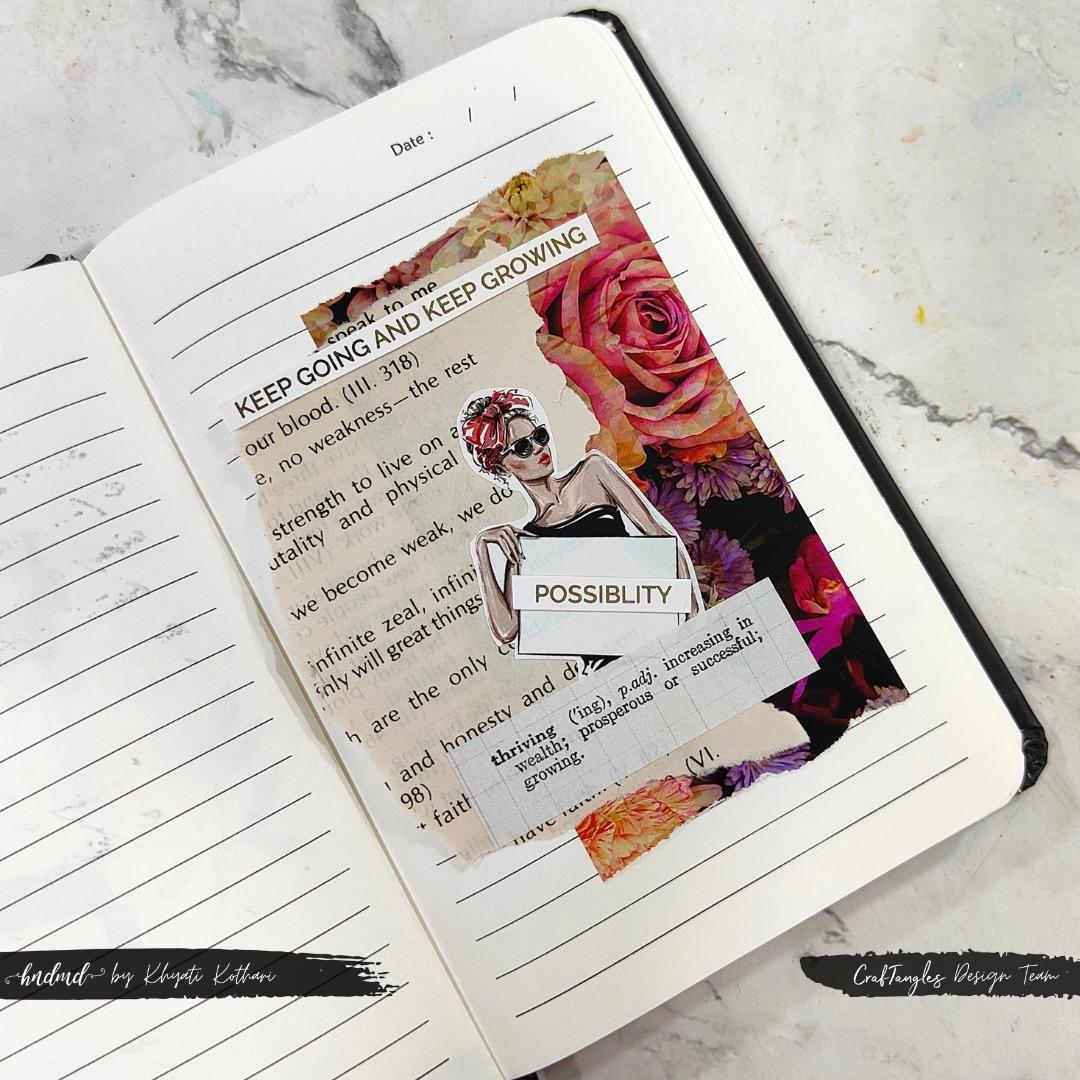 Date :    /    /
speak to me
KEEP GOING AND KEEP GROWING
our blood. (III. 318)
e, no weakness—the rest
strength to live on a
utality and physical
we become weak, we do
infinite zeal, infini
nly will great things
h are the only
and honesty and de
98)
+ faith
have
(VI.
POSSIBLITY
thriving (′ing), p.adj. increasing in
wealth; prosperous or successful;
growing.
hndmd by Khyati Kothari
CrafTangles Design Team